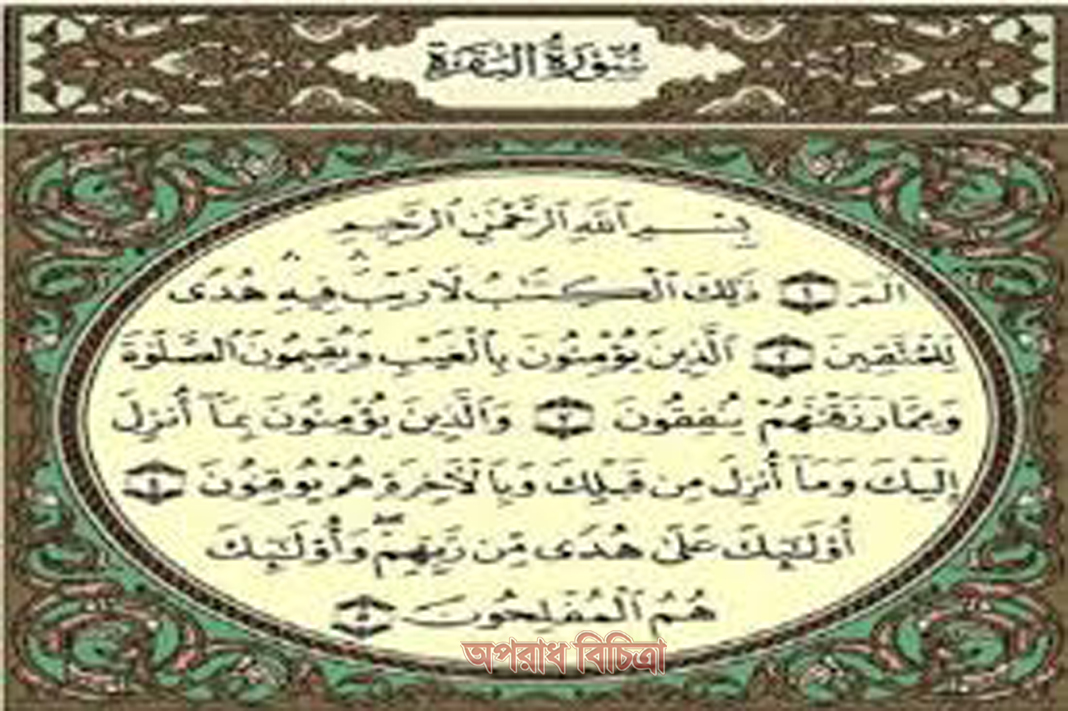 سُورَةُ الْبَقَرَةِ
بِسْمِ ٱللَّهِ ٱلرَّحْمَٰنِ ٱلرَّحِيمِ
الٓمٓ ۝١ ذَٰلِكَ ٱلْكِتَٰبُ لَا رَيْبَ ۛ فِيهِ ۛ هُدًى
لِّلْمُتَّقِينَ ۝٢ ٱلَّذِينَ يُؤْمِنُونَ بِٱلْغَيْبِ وَيُقِيمُونَ ٱلصَّلَوٰةَ
وَمِمَّا رَزَقْنَٰهُمْ يُنفِقُونَ ۝٣ وَٱلَّذِينَ يُؤْمِنُونَ بِمَآ أُنزِلَ
إِلَيْكَ وَمَآ أُنزِلَ مِن قَبْلِكَ وَبِٱلْءَاخِرَةِ هُمْ يُوقِنُونَ ۝٤
أُو۟لَٰٓئِكَ عَلَىٰ هُدًى مِّن رَّبِّهِمْ ۖ وَأُو۟لَٰٓئِكَ
هُمُ ٱلْمُفْلِحُونَ ۝٥
অপরাধ বিচিত্রা